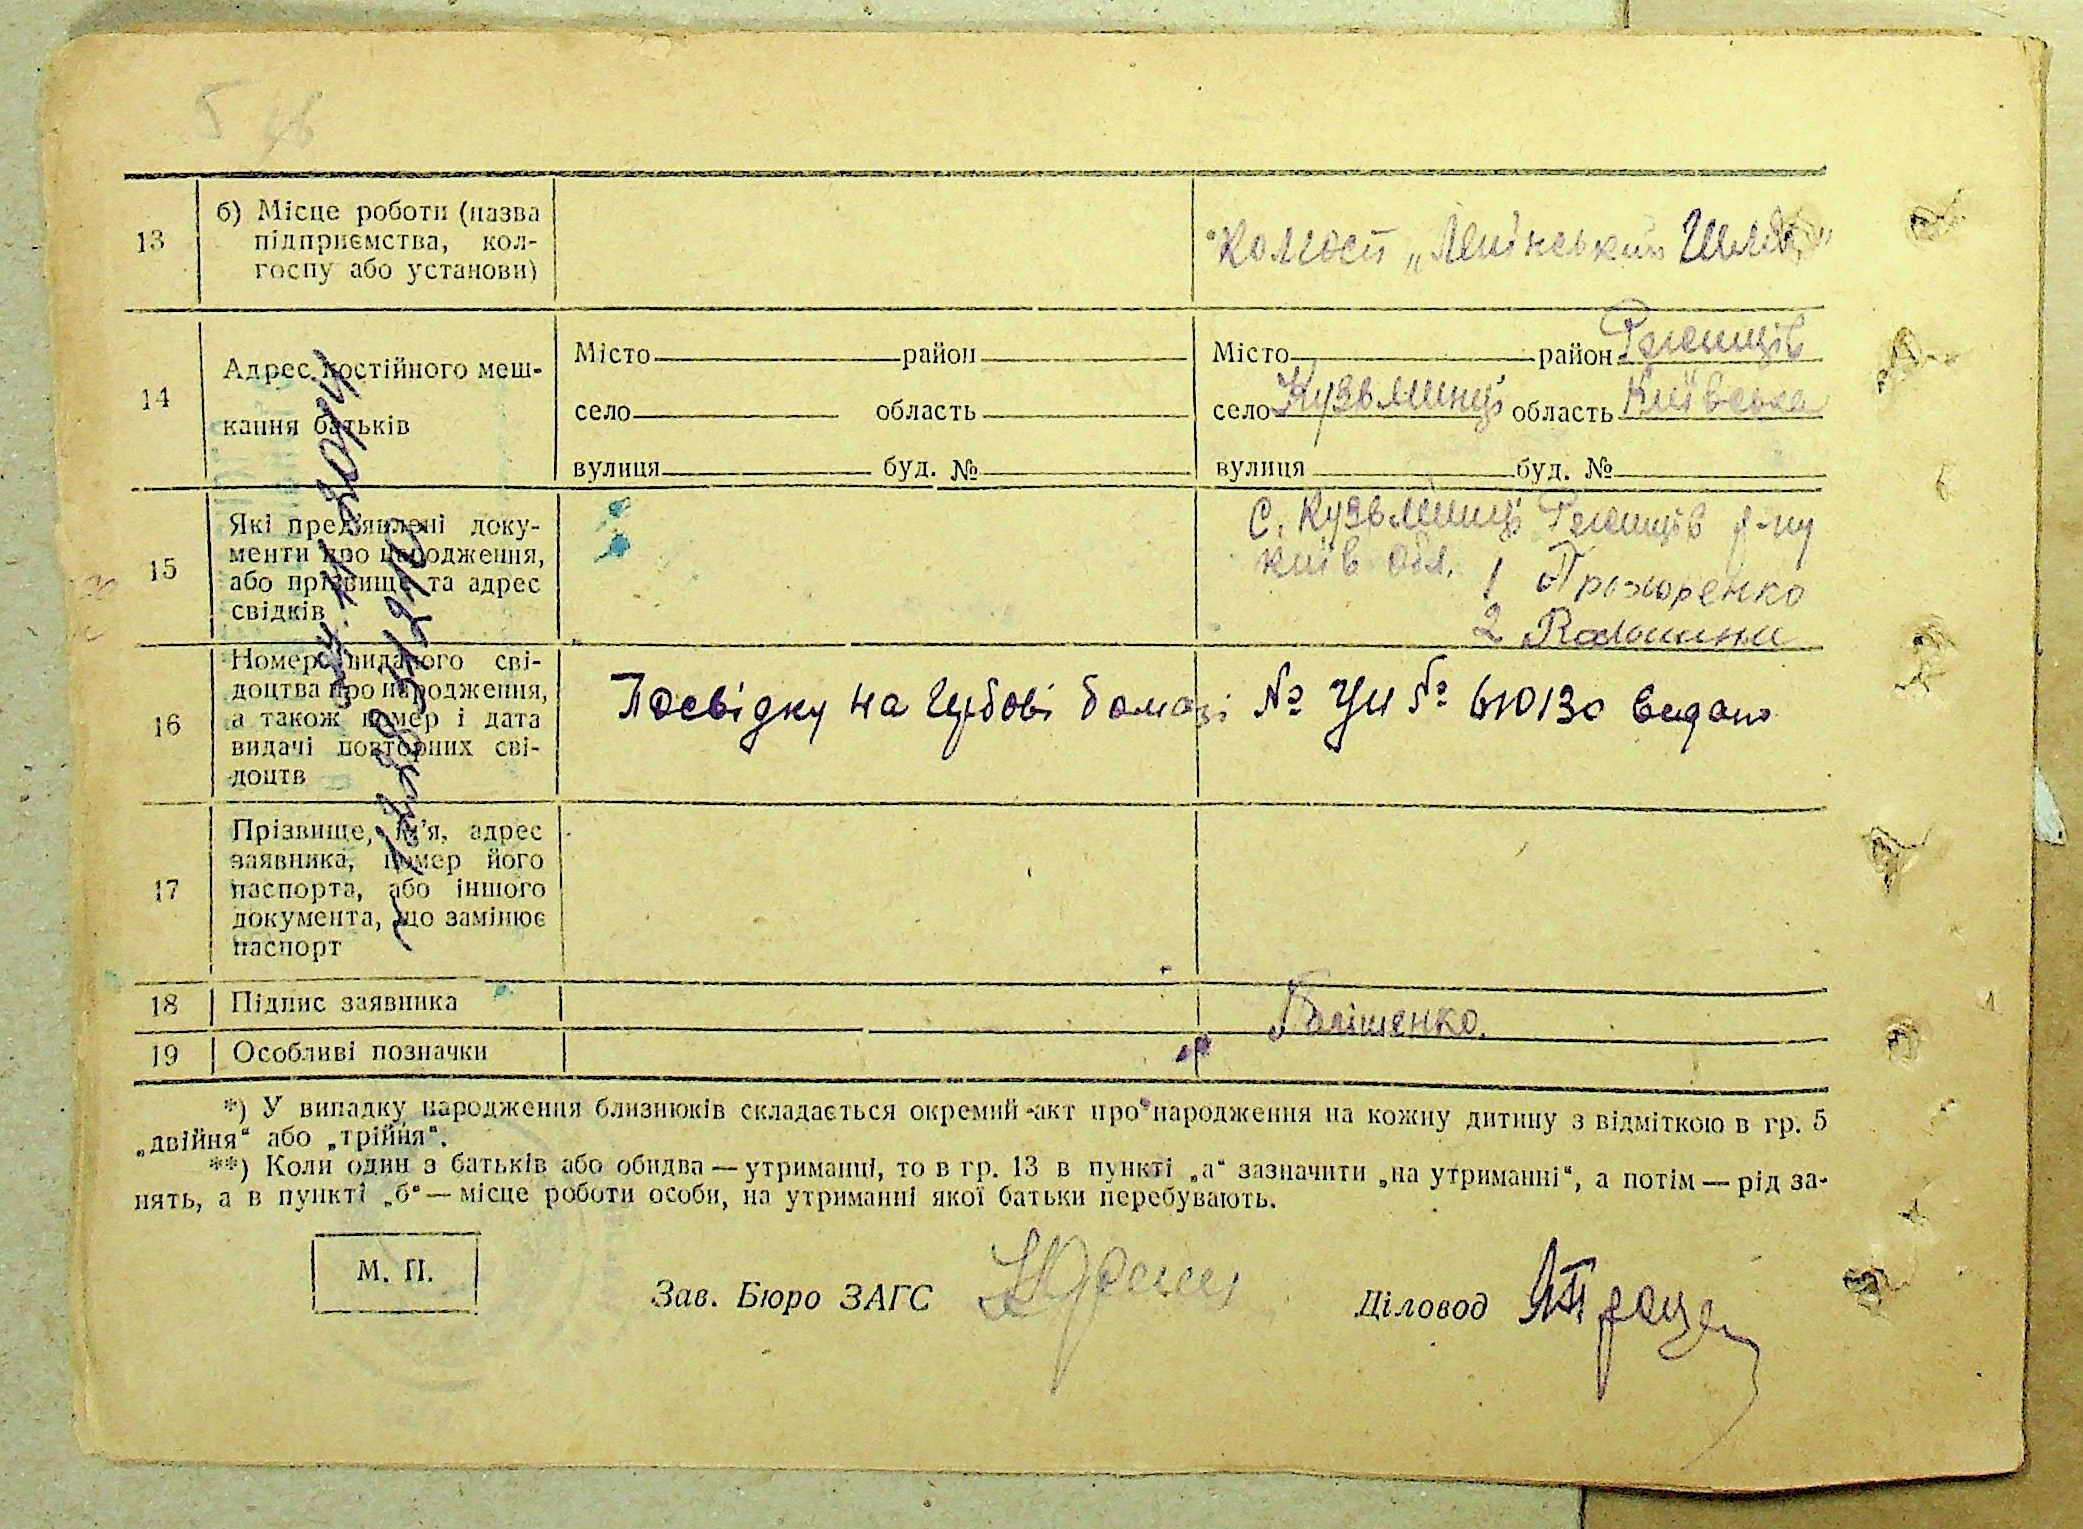 5
13
б) Місце роботи (назва
підприємства, кол-
госпу або установи)
Колгосп „Ленінський Шлях"
14
Адрес постійного меш-
кання батьків
Місто район
село область
вулиця буд. №
Місто район Ржищів
село Кузьминці область Київська
вулиця буд. №
15
Які пред'явлені доку-
менти про народження,
або прізвище та адрес
свідків
с. Кузьминці Ржищів р-ну
Київ обл. 1 Прохоренко
2
16
Номер виданого сві-
доцтва про народження,
а також номер і дата
видачі повторних сві-
доцтв
Посвідку на гербові бомазі № УИ № 610130 видано
17
Прізвище, ім'я, адрес
заявника, номер його
паспорта, або іншого
документа, що замінює
паспорт
18
Підпис заявника
19
Особливі позначки
*) У випадку народження близнюків складається окремий акт про народження на кожну дитину з відміткою в гр. 5
„двійня" або „трійня".
**) Коли один з батьків або обидва — утриманці, то в гр. 13 в пункті „а" зазначити „на утриманні", а потім — рід за-
нять, а в пункті „б" — місце роботи особи, на утриманні якої батьки перебувають.
М. П.
Зав. Бюро ЗАГС
Діловод